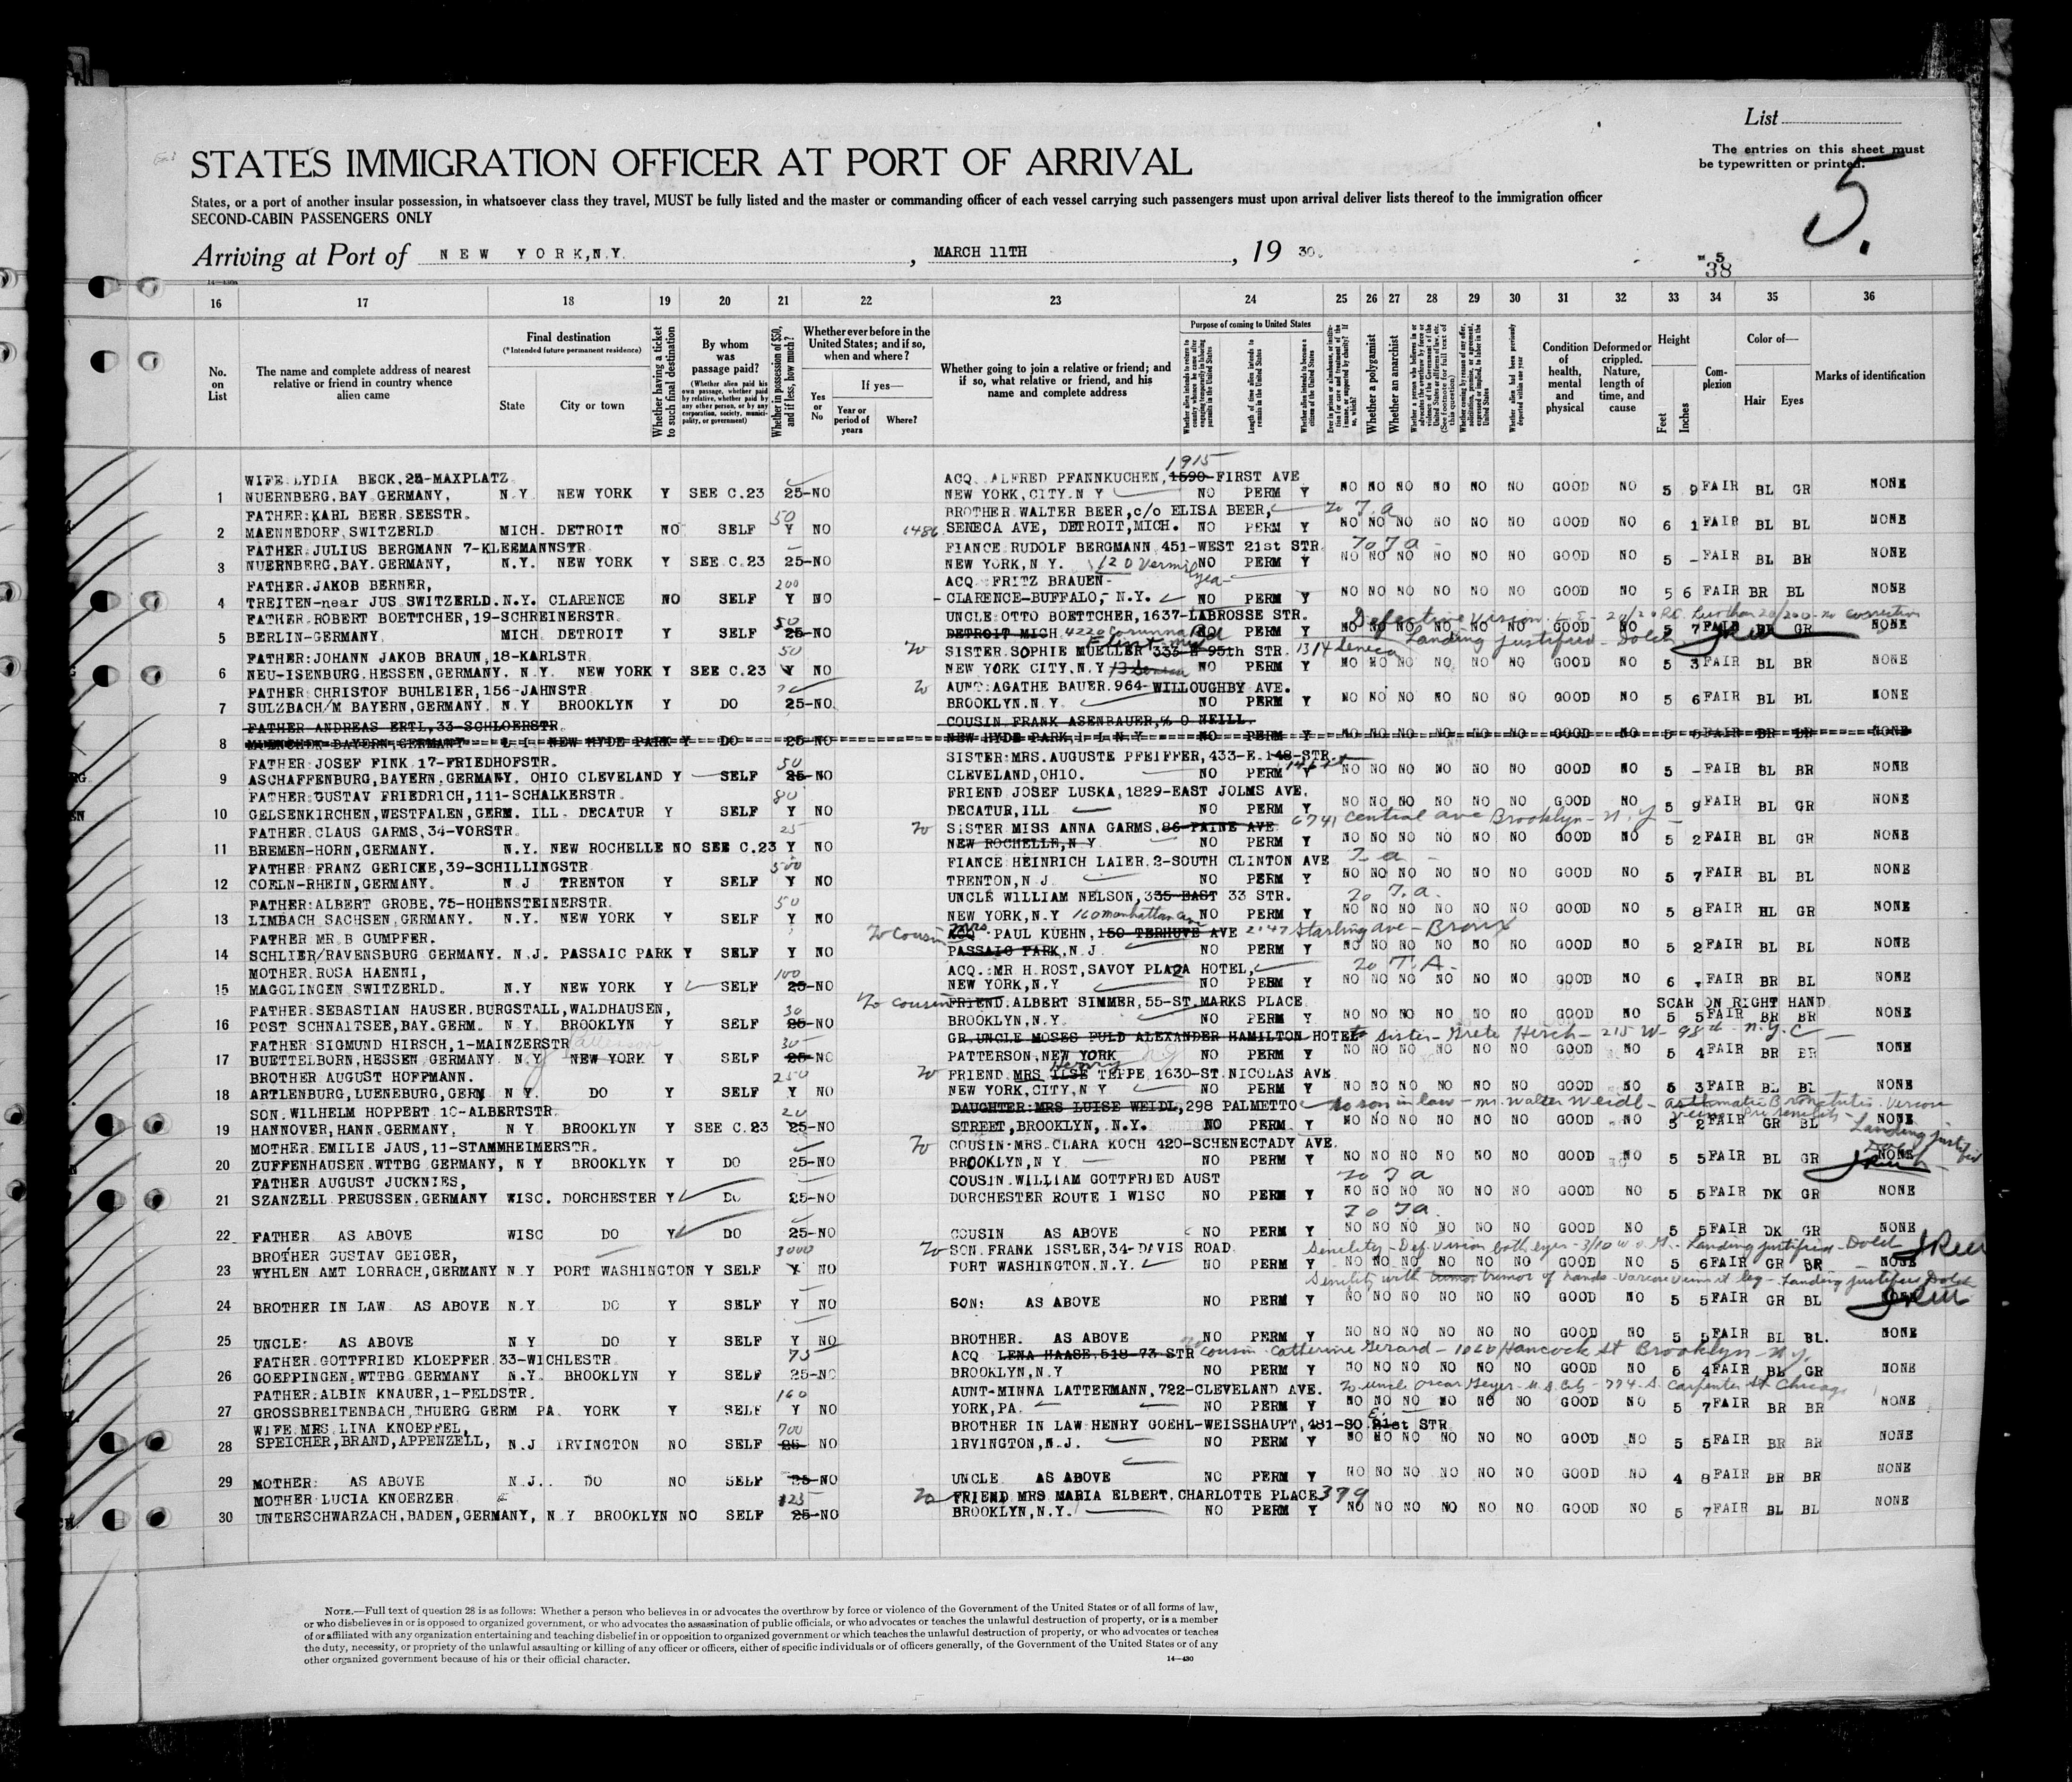 List
The entries on this sheet must
be typewritten or printed.
5.
STATES IMMIGRATION OFFICER AT PORT OF ARRIVAL
States, or a port of another insular possession, in whatsoever class they travel, MUST be fully listed and the master or commanding officer of each vessel carrying such passengers must upon arrival deliver lists thereof to the immigration officer
SECOND-CABIN PASSENGERS ONLY
Arriving at Port of NEW YORK,N.Y. , MARCH 11TH , 19 30.
5
38
16 17 18 19 20 21 22 23 24 25 26 27 28 29 30 31 32 33 34 35 36
No. on List
The name and complete address of nearest relative or friend in country whence alien came
Final destination
(*Intended future permanent residence)
State City or town
Whether having a ticket to such final destination
By whom was passage paid?
(Whether alien paid his own passage, whether paid by relative, whether paid by any other person, or by any corporation, society, municipality, or government)
Whether in possession of $50, and if less, how much?
Whether ever before in the United States; and if so, when and where?
Yes or No
If yes—
Year or period of years
Where?
Whether going to join a relative or friend; and if so, what relative or friend, and his name and complete address
Purpose of coming to United States
Length of time alien intends to remain in the United States
Whether alien intends to become a citizen of the United States
Whether a polygamist
Whether an anarchist
Condition of health, mental and physical
Deformed or crippled. Nature, length of time, and cause
Height
Feet Inches
Complexion
Color of—
Hair Eyes
Marks of identification
1915
WIFE LYDIA BECK,25-MAXPLATZ ACQ. ALFRED PFANNKUCHEN,1590 FIRST AVE
1 NUERNBERG,BAY.GERMANY, N.Y. NEW YORK Y SEE C.23 25-NO NEW YORK,CITY.N Y NO PERM Y NO NO NO NO NO NO GOOD NO 5 9 FAIR BL GR NONE
FATHER:KARL BEER SEESTR. 50 BROTHER WALTER BEER,c/o ELISA BEER,
2 MAENNEDORF SWITZERLD MICH. DETROIT NO SELF Y NO 6486 SENECA AVE, DETROIT,MICH. NO PERM Y NO NO NO NO NO NO GOOD NO 6 1 FAIR BL BL NONE
FATHER JULIUS BERGMANN 7-KLEEMANNSTR. FIANCE RUDOLF BERGMANN 451-WEST 21st STR.
3 NUERNBERG,BAY.GERMANY, N.Y. NEW YORK Y SEE C.23 25-NO NEW YORK,N Y. NO PERM Y NO NO NO NO NO NO GOOD NO 5 - FAIR BL BR NONE
FATHER.JAKOB BERNER, 200 ACQ FRITZ BRAUEN-
4 TREITEN-near JUS SWITZERLD. N.Y. CLARENCE NO SELF Y NO CLARENCE-BUFFALO,- N.Y. NO PERM Y NO NO NO NO NO NO GOOD NO 5 6 FAIR BR BL NONE
FATHER.ROBERT BOETTCHER,19-SCHREINERSTR. 50 UNCLE OTTO BOETTCHER,1637-LABROSSE STR. Defective Vision
5 BERLIN-GERMANY MICH DETROIT Y SELF 25-NO DETROIT MICH NO PERM Y NO NO NO NO NO NO GOOD NO 5 7 FAIR BR GR NONE
Landing justified
FATHER:JOHANN JAKOB BRAUN,18-KARLSTR. 50 SISTER SOPHIE MUELLER 333-W 95th STR. 1314 Seneca
6 NEU-ISENBURG.HESSEN,GERMANY. N.Y. NEW YORK Y SEE C.23 Y NO NEW YORK CITY.N.Y NO PERM Y NO NO NO NO NO NO GOOD NO 5 3 FAIR BL BR NONE
FATHER CHRISTOF BUHLEIER,156-JAHNSTR AUNT:AGATHE BAUER.964-WILLOUGHBY AVE.
7 SULZBACH/M BAYERN,GERMANY. N.Y BROOKLYN Y DO 25-NO BROOKLYN.N.Y. NO PERM Y NO NO NO NO NO NO GOOD NO 5 6 FAIR BL BL NONE
FATHER ANDREAS ERTL,33-SCHLOERSTR. COUSIN FRANK ASENBAUER,% O NEILL.
8 MUENCHEN BAYERN,GERMANY L I NEW HYDE PARK Y DO 25-NO NEW HYDE PARK,L I N.Y NO PERM Y NO NO NO NO NO NO GOOD NO 5 5 FAIR BR BR NONE
FATHER JOSEF FINK 17-FRIEDHOFSTR. 50 SISTER:MRS.AUGUSTE PFEIFFER,433-E.148-STR.
9 ASCHAFFENBURG,BAYERN.GERMANY. OHIO CLEVELAND Y SELF 25-NO CLEVELAND,OHIO. NO PERM Y NO NO NO NO NO NO GOOD NO 5 - FAIR BL BR NONE
FATHER:GUSTAV FRIEDRICH,111-SCHALKERSTR. 80 FRIEND JOSEF LUSKA,1829-EAST JOLMS AVE.
10 GELSENKIRCHEN,WESTFALEN,GERM. ILL. DECATUR Y SELF Y NO DECATUR,ILL NO PERM Y NO NO NO NO NO NO GOOD NO 5 9 FAIR BL GR NONE
FATHER.CLAUS GARMS,34-VORSTR. 25 SISTER MISS ANNA GARMS.86 PAINE AVE. 6741 Central ave Brooklyn - n.y
11 BREMEN-HORN,GERMANY. N.Y. NEW ROCHELLE NO SEE C.23 Y NO NEW ROCHELLE,N Y NO PERM Y NO NO NO NO NO NO GOOD NO 5 2 FAIR BL GR NONE
FATHER FRANZ GERICKE,39-SCHILLINGSTR. 500 FIANCE HEINRICH LAIER.2-SOUTH CLINTON AVE
12 COELN-RHEIN,GERMANY. N J TRENTON Y SELF Y NO TRENTON,N J NO PERM Y NO NO NO NO NO NO GOOD NO 5 7 FAIR BL BL NONE
FATHER:ALBERT GROBE,75-HOHENSTEINERSTR. 50 UNCLE WILLIAM NELSON,335 EAST 33 STR.
13 LIMBACH SACHSEN,GERMANY. N.Y. NEW YORK Y SELF Y NO NEW YORK,N.Y 160 manhattan av NO PERM Y NO NO NO NO NO NO GOOD NO 5 8 FAIR BL GR NONE
FATHER MR B GUMPFER. To Cousin Mrs ACQ PAUL KUEHN,150 TERHUVE AVE 2147 Starling ave - Bronx
14 SCHLIER/RAVENSBURG GERMANY. N.J. PASSAIC PARK Y SELF Y NO PASSAIC PARK,N.J NO PERM Y NO NO NO NO NO NO GOOD NO 5 2 FAIR BL BL NONE
MOTHER.ROSA HAENNI, 100 ACQ.:MR H.ROST,SAVOY PLAZA HOTEL,
15 MAGGLINGEN SWITZERLD. N.Y NEW YORK Y SELF 25-NO NEW YORK,N Y NO PERM Y NO NO NO NO NO NO GOOD NO 6 - FAIR BR BL NONE
FATHER.SEBASTIAN HAUSER.BURGSTALL,WALDHAUSEN, 30 To cousin FRIEND.ALBERT SIMMER,55-ST.MARKS PLACE SCAR ON RIGHT HAND
16 POST SCHNAITSEE,BAY.GERM. N.Y. BROOKLYN Y SELF 25-NO BROOKLYN,N.Y. NO PERM Y NO NO NO NO NO NO GOOD NO 5 5 FAIR BR BR NONE
FATHER SIGMUND HIRSCH,1-MAINZERSTR 30 GR.UNCLE MOSES PULD ALEXANDER HAMILTON HOTEL to Sister - Grete Hirsch - 215 W - 98th - n.y.C
17 BUETTELBORN,HESSEN GERMANY. N.Y NEW YORK Y SELF 25-NO PATTERSON,NEW YORK NO PERM Y NO NO NO NO NO NO GOOD NO 5 4 FAIR BR BR NONE
BROTHER AUGUST HOFFMANN. 250 FRIEND MRS ILSE Henry TEPPE 1630-ST.NICOLAS AVE
18 ARTLENBURG,LUENEBURG,GERM N Y. DO Y SELF Y NO NEW YORK,CITY,N Y NO PERM Y NO NO NO NO NO NO GOOD NO 5 3 FAIR BL BL NONE
SON.WILHELM HOPPERT 10-ALBERTSTR. 20 DAUGHTER:MRS LUISE WEIDL,298 PALMETTO to son in law - mr. Walter Weidl - asthmatic Bronchitis
19 HANNOVER,HANN.GERMANY, N Y BROOKLYN Y SEE C.23 25-NO STREET,BROOKLYN, N.Y. NO PERM Y NO NO NO NO NO NO GOOD NO 5 2 FAIR GR BL NONE
Landing justified
MOTHER EMILIE JAUS,11-STAMMHEIMERSTR. COUSIN-MRS.CLARA KOCH 420-SCHENECTADY AVE.
20 ZUFFENHAUSEN.WTTBG GERMANY, N Y BROOKLYN Y DO 25-NO BROOKLYN,N Y NO PERM Y NO NO NO NO NO NO GOOD NO 5 5 FAIR BL GR NONE
FATHER AUGUST JUCKNIES, COUSIN.WILLIAM GOTTFRIED AUST
21 SZANZELL PREUSSEN.GERMANY WISC. DORCHESTER Y DO 25-NO DORCHESTER ROUTE I WISC NO PERM Y NO NO NO NO NO NO GOOD NO 5 5 FAIR DK GR NONE
22 FATHER AS ABOVE WISC DO Y DO 25-NO COUSIN AS ABOVE NO PERM Y NO NO NO NO NO NO GOOD NO 5 5 FAIR DK GR NONE
BROTHER GUSTAV GEIGER, 3000 SON.FRANK ISSLER,34-DAVIS ROAD. Senility - Def. vision both eyes - Landing justified - Dold
23 WYHLEN AMT LORRACH,GERMANY N Y PORT WASHINGTON Y SELF Y NO PORT WASHINGTON.N.Y. NO PERM Y NO NO NO NO NO NO GOOD NO 5 6 FAIR GR BR NONE
Senility with tremor of hands - Landing justified Dold
24 BROTHER IN LAW AS ABOVE N.Y DO Y SELF Y NO SON: AS ABOVE NO PERM Y NO NO NO NO NO NO GOOD NO 5 5 FAIR GR BL NONE
25 UNCLE: AS ABOVE N Y DO Y SELF Y NO BROTHER. AS ABOVE NO PERM Y NO NO NO NO NO NO GOOD NO 5 5 FAIR BL BL. NONE
FATHER.GOTTFRIED KLOEPFER 33-WICHLESTR. 75 ACQ LENA HAASE,518-73.STR cousin Catherine Gerard - 1060 Hancock St Brooklyn - N.Y.
26 GOEPPINGEN.WTTBG GERMANY N.Y. BROOKLYN Y SELF 25-NO BROOKLYN,N.Y NO PERM Y NO NO NO NO NO NO GOOD NO 5 4 FAIR BL GR NONE
FATHER:ALBIN KNAUER,1-FELDSTR. 160 AUNT-MINNA LATTERMANN,722-CLEVELAND AVE. to uncle Oscar Geyer - U.S. City - 774 - S. Carpenter St Chicago
27 GROSSBREITENBACH,THUERG GERM PA. YORK Y SELF Y NO YORK,PA. NO PERM Y NO NO NO NO NO NO GOOD NO 5 7 FAIR BR BR NONE
WIFE MRS LINA KNOEPFEL, 700 BROTHER IN LAW HENRY GOEHL-WEISSHAUPT,431-SO.21st STR
28 SPEICHER,BRAND,APPENZELL, N.J IRVINGTON NO SELF 25- NO IRVINGTON,N.J. NO PERM Y NO NO NO NO NO NO GOOD NO 5 5 FAIR BR BR NONE
29 MOTHER: AS ABOVE N.J.. DO NO SELF 25-NO UNCLE AS ABOVE NO PERM Y NO NO NO NO NO NO GOOD NO 4 8 FAIR BR BR NONE
MOTHER LUCIA KNOERZER 125 FRIEND MRS MARIA ELBERT.CHARLOTTE PLACE 379
30 UNTERSCHWARZACH,BADEN,GERMANY, N.Y BROOKLYN NO SELF 25-NO BROOKLYN,N.Y. NO PERM Y NO NO NO NO NO NO GOOD NO 5 7 FAIR BL BL NONE
NOTE.—Full text of question 28 is as follows: Whether a person who believes in or advocates the overthrow by force or violence of the Government of the United States or of all forms of law,
or who disbelieves in or is opposed to organized government, or who advocates the assassination of public officials, or who advocates or teaches the unlawful destruction of property, or is a member
of or affiliated with any organization entertaining and teaching disbelief in or opposition to organized government or which teaches the unlawful destruction of property, or who advocates or teaches
the duty, necessity, or propriety of the unlawful assaulting or killing of any officer or officers, either of specific individuals or of officers generally, of the Government of the United States or of any
other organized government because of his or their official character.
14—430